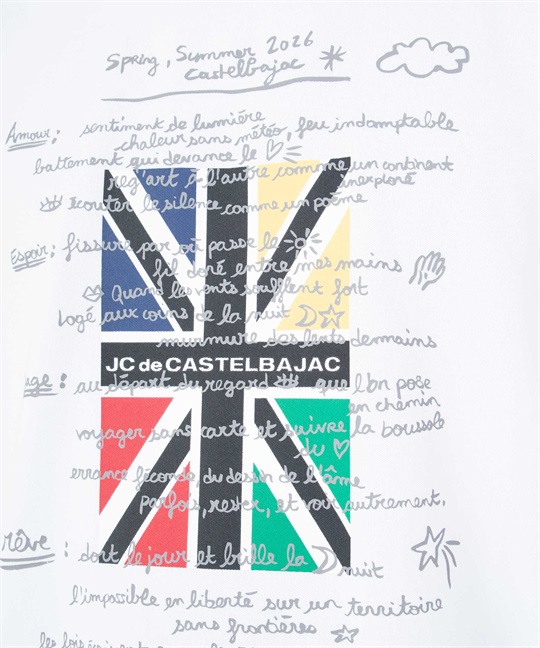 Spring, Summer 2026
Castelbajac
Amour: sentiment de lumière
chaleur sans météo, feu indomptable
battement qui devance le
reg'art à l'autre comme un continent
inexploré
écouter le silence comme un poème
Espoir: fissure par où passe le
fil doré entre mes mains
Quand les vents soufflent fort
logé aux coins de la nuit
murmure des lents demains
JC de CASTELBAJAC
age: au départ du regard que l'on pose
en chemin
voyager sans carte et suivre la boussole
du
errance féconde, du dessin de l'âme
parfois, rester, et voir autrement.
rêve: dort le jour et brille la nuit
l'impossible en liberté sur un territoire
sans frontières
les lois